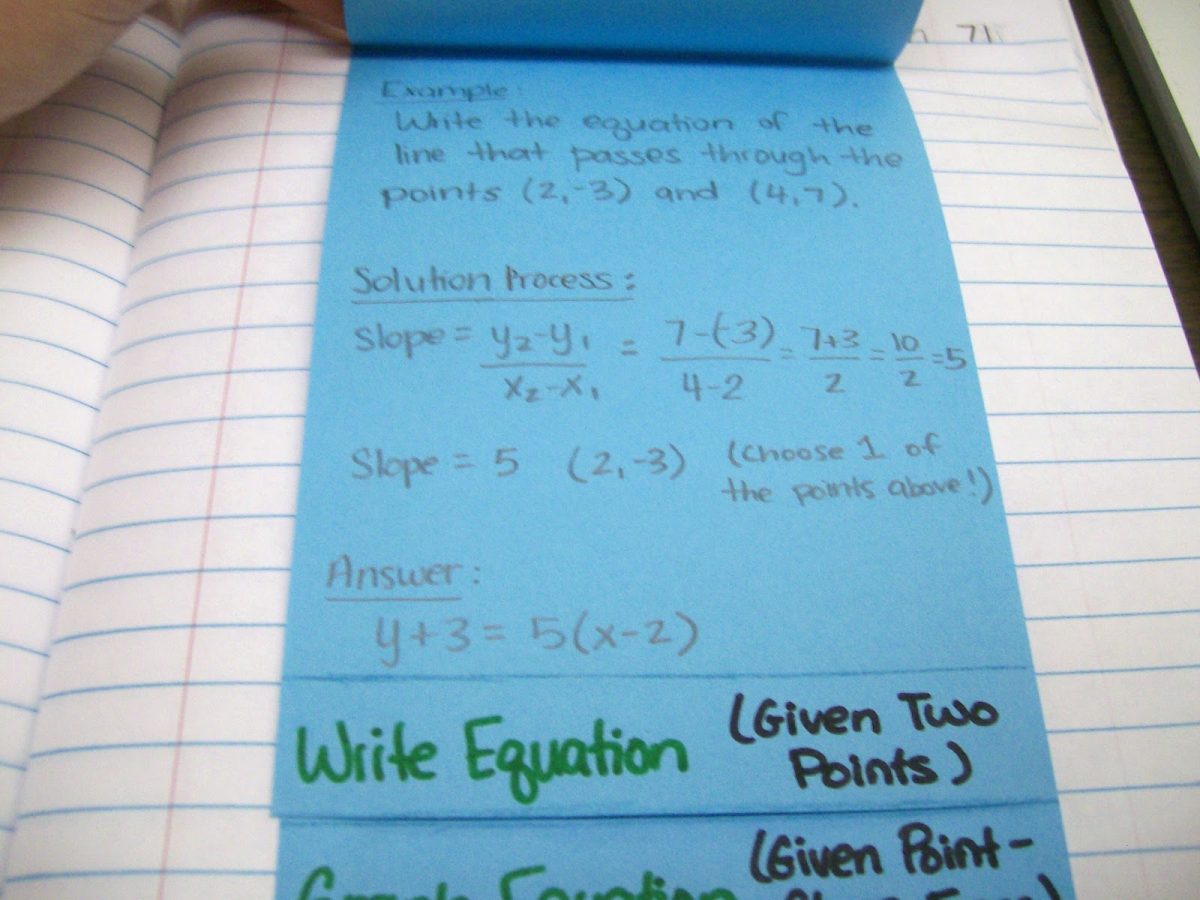 71
Example:
Write the equation of the
line that passes through the
points (2,-3) and (4,7).
Solution Process:
Slope = y₂-y₁ / x₂-x₁ = 7-(-3) / 4-2 = 7+3 / 2 = 10 / 2 = 5
Slope = 5 (2,-3) (Choose 1 of
the points above!)
Answer:
y+3 = 5(x-2)
Write Equation (Given Two
Points)
Equation (Given Point-